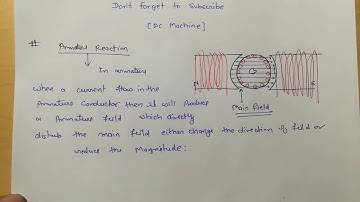 Don't forget to Subscribe
[DC Machine]
# Armature Reaction
In armature
N
S
Main Field
When a current flow in the
Armature Conductor then it will Produce
a Armature field which directly
disturb the main field either change the direction of field or
reduce the Magnitude: